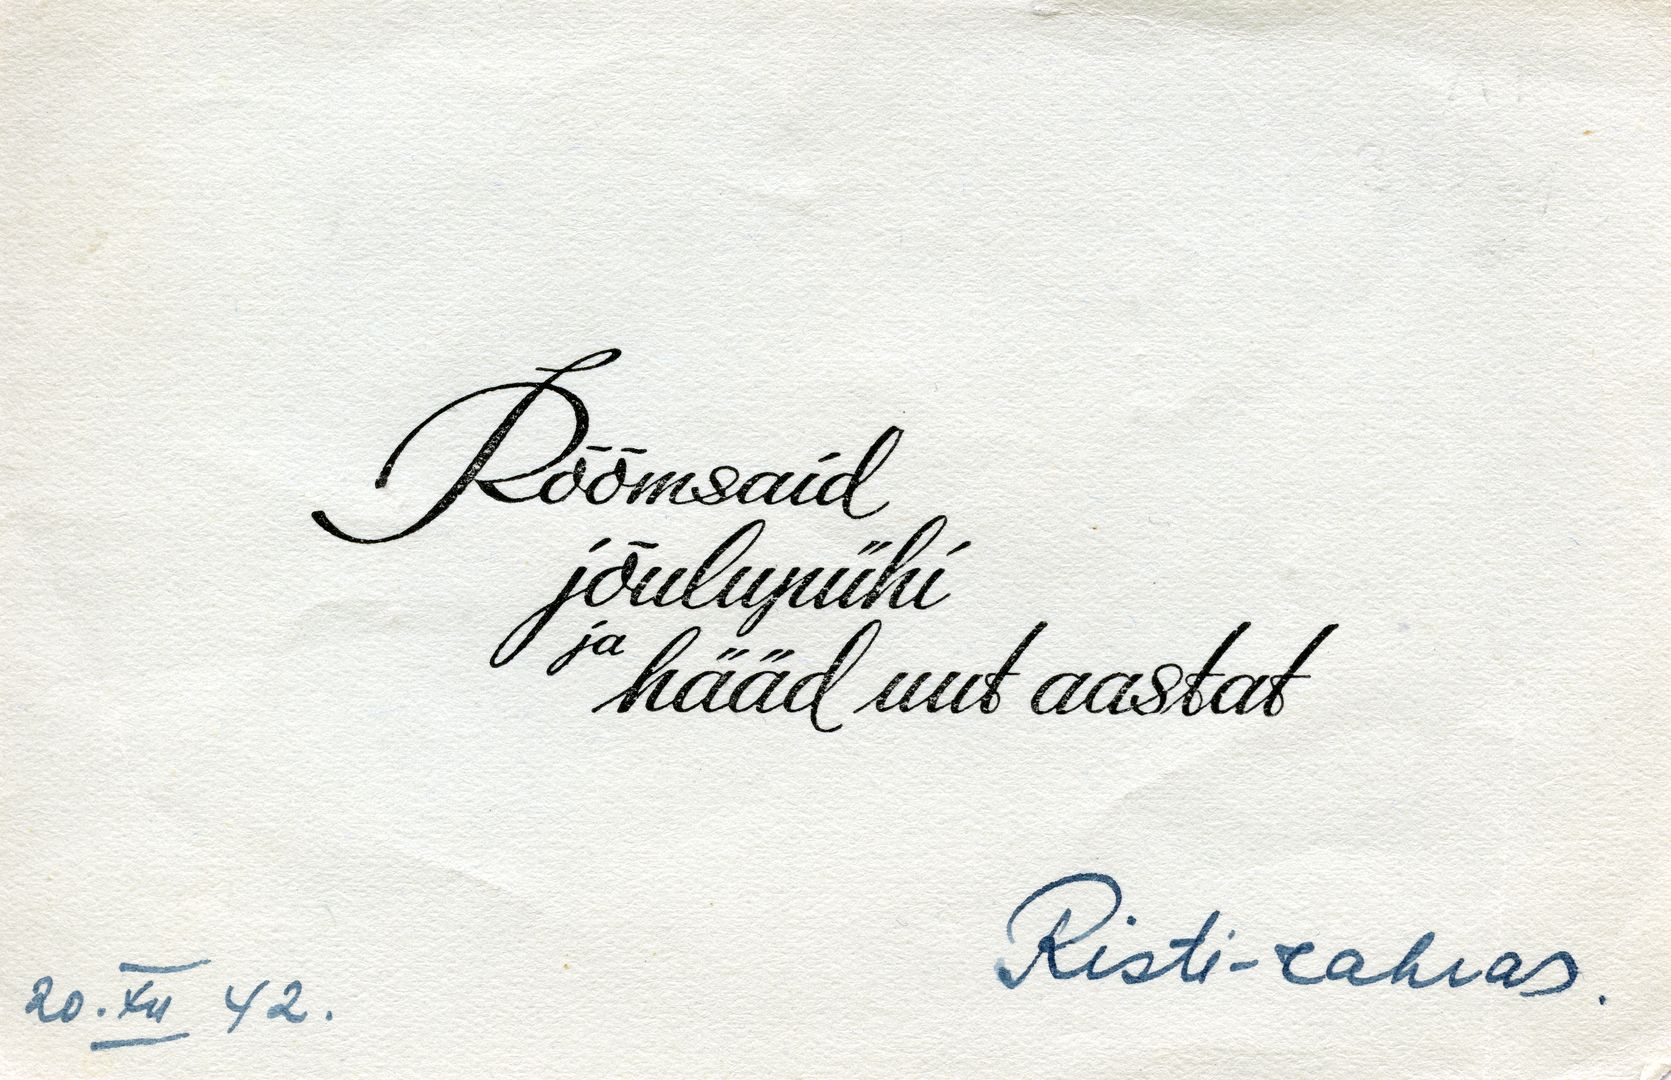 Rõõmsaid
jõulupühi
ja hääd uut aastat
Risti-rahvas.
20. XII 42.